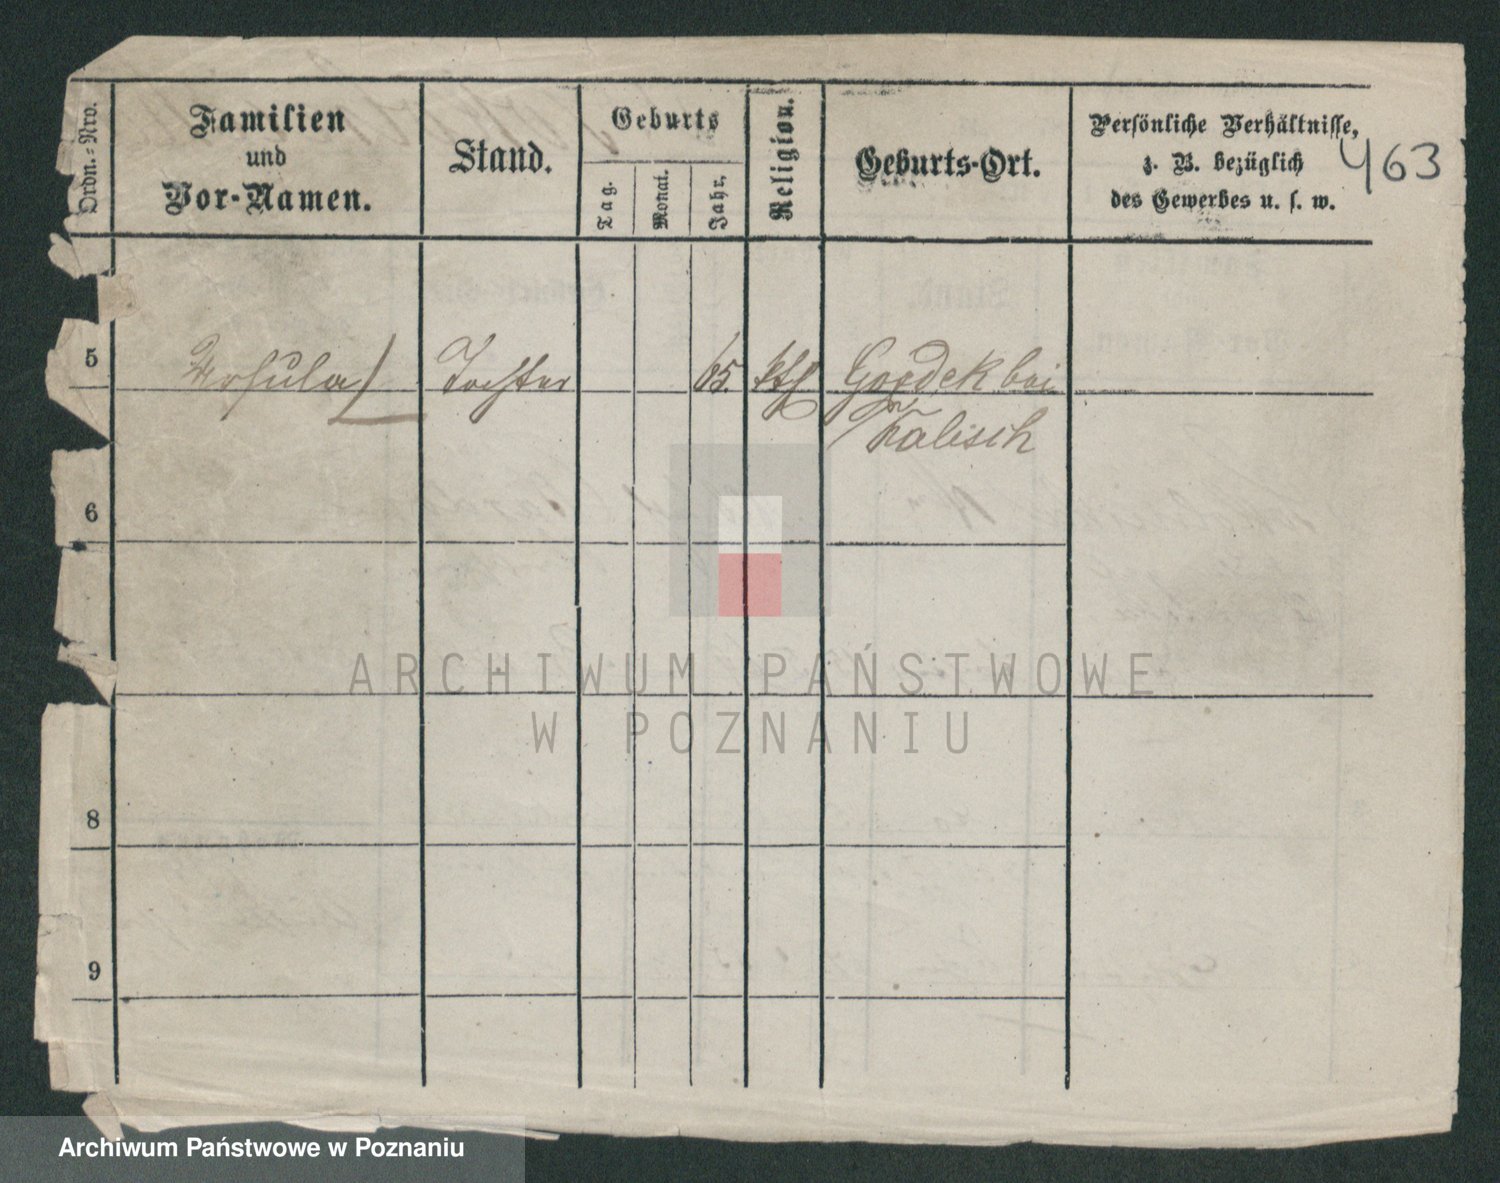 Ordn.-Nro.
Familien
und
Vor-Namen.
Stand.
Geburts
Tag.
Monat.
Jahr.
Religion.
Geburts-Ort.
Persönliche Verhältnisse,
z. B. bezüglich
des Gewerbes u. s. w.
463
5
Ursula
Tochter
65.
kth
bei
Kalisch
6
8
9
ARCHIWUM PAŃSTWOWE
W POZNANIU
Archiwum Państwowe w Poznaniu